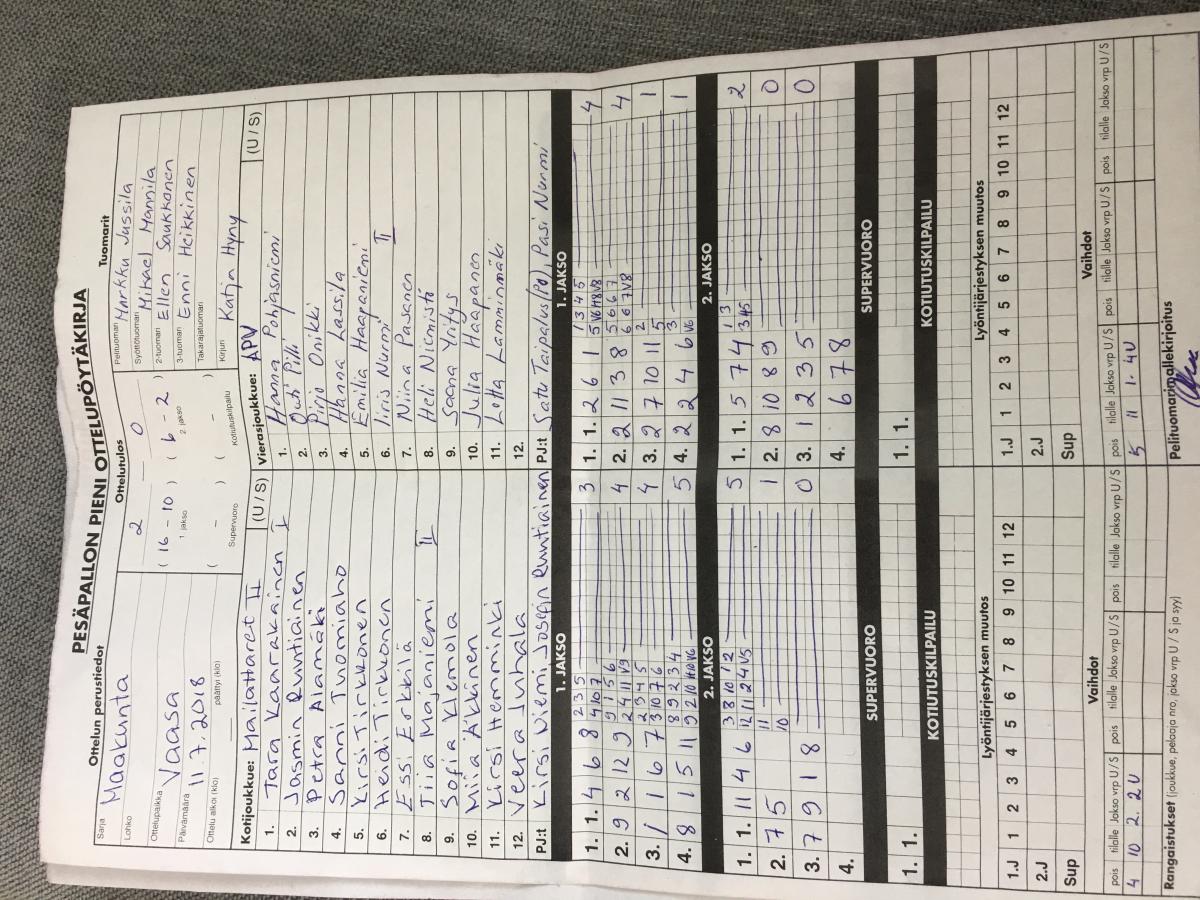 PESÄPALLON PIENI OTTELUPÖYTÄKIRJA
Ottelun perustiedot
Ottelutulos
Tuomarit
Sarja
Maakunta
Lohko
Ottelupaikka
Vaasa
Päivämäärä
11.7.2018
Ottelu alkoi (klo)
päättyi (klo)
2 – 0
( 16 – 10 ) ( 6 – 2 )
1. jakso
2. jakso
( – ) ( – )
Supervuoro
Kotiutuskilpailu
Pelituomari
Markku Jussila
Syöttötuomari
Mikael Mannila
2-tuomari
Ellen Saukkonen
3-tuomari
Enni Heikkinen
Takarajatuomari
Kirjuri
Katja Hyny
Kotijoukkue: Mailattaret II (U / S)
1. Tara Kaarakainen I
2. Jasmin Runtiainen
3. Petra Alamäki
4. Sanni Tuomiaho
5. Kirsi Tirkkonen
6. Heidi Tirkkonen
7. Essi Erkkilä
8. Tiia Majaniemi II
9. Sofia Klemola
10. Miia Äkkinen
11. Kirsi Hemminki
12. Veera Juhala
PJ:t Kirsi Niemi, Josefin Runtiainen
Vierasjoukkue: APV (U / S)
1. Hanna Pohjasniemi
2. Outi Pilli
3. Pirjo Onikki
4. Hanna Lassila
5. Emilia Haapaniemi
6. Iiris Nurmi II
7. Niina Pasanen
8. Heli Niemistö
9. Saana Yritys
10. Julia Haapanen
11. Lotta Lamminmäki
12.
PJ:t Satu Taipalus(Po), Pasi Nurmi
1. JAKSO
1. 1. 4 6 8 2 3 5 3
4 10 7
2. 9 2 12 9 9 1 5 6 4
2 4 11 V9
3. 1 1 6 7 2 9 4 5 4
3 10 7 6
4. 8 1 5 11 8 9 2 3 4 5
9 2 10 H10 V6
2. JAKSO
1. 1. 11 4 6 3 8 10 1 2 5
12 11 2 4 V5
2. 7 5 11 1
10
3. 7 9 1 8 0
4.
SUPERVUORO
1. 1.
KOTIUTUSKILPAILU
1. JAKSO
1. 1. 2 6 1 1 3 4 5 4
5 V6 H8 V8
2. 2 11 3 8 5 6 6 7 4
6 6 7 V8
3. 2 7 10 11 2 1
5
4. 2 2 4 6 3 1
V6
2. JAKSO
1. 1. 5 7 4 1 3 2
3 H5
2. 8 10 8 9 0
3. 1 2 3 5 0
4. 6 7 8
SUPERVUORO
1. 1.
KOTIUTUSKILPAILU
Lyöntijärjestyksen muutos
1.J 1 2 3 4 5 6 7 8 9 10 11 12
2.J
Sup
Vaihdot
pois tilalle Jakso vrp U / S pois tilalle Jakso vrp U / S pois tilalle Jakso vrp U / S
4 10 2. 2U
Lyöntijärjestyksen muutos
1.J 1 2 3 4 5 6 7 8 9 10 11 12
2.J
Sup
Vaihdot
pois tilalle Jakso vrp U / S pois tilalle Jakso vrp U / S pois tilalle Jakso vrp U / S
5 11 1. 4U
Rangaistukset (joukkue, pelaaja nro, jakso vrp U / S ja syy)
Pelituomarin allekirjoitus